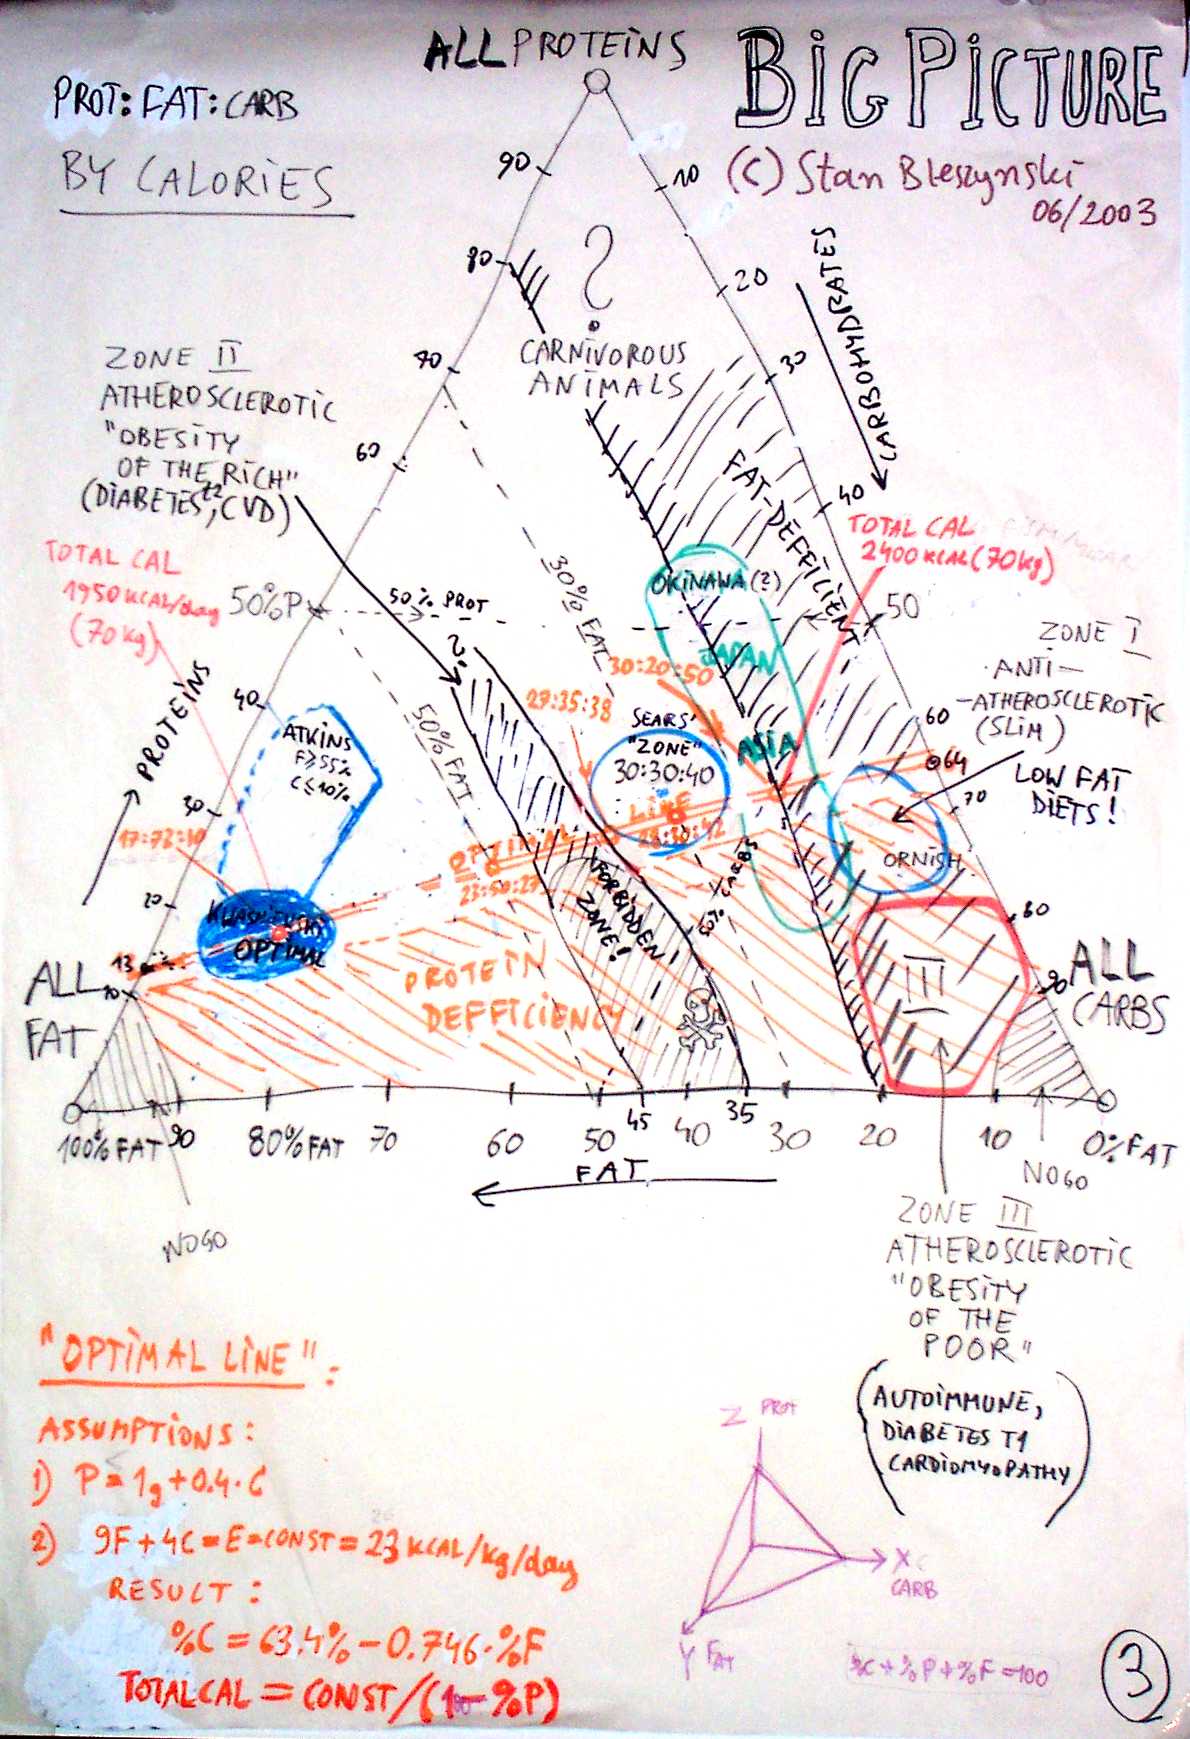 ALL PROTEiNS
BiG PiCTURE
PROT:FAT:CARB
BY CALORiES
(C) Stan Bleszynski
06/2003
90
10
80
20
?
CARNiVOROUS
ANiMALS
CARBOHYDRATES
ZONE II
ATHEROSCLEROTiC
"OBESiTY
OF THE RiCH"
(DiABETES t2, CVD)
70
30
60
40
FAT-DEFFiCiENT
TOTAL CAL
2400 KCAL (70kg)
TOTAL CAL
1950 KCAL/day
(70 kg)
50%P
50% PROT
30% FAT
50
OKiNAWA (?)
JAPAN
ASiA
ZONE I
ANTi-
-ATHEROSCLEROTiC
(SLiM)
LOW FAT
DiETS!
?
30:20:50
27:35:38
SEARS'
"ZONE"
30:30:40
PROTEiNS
40
ATKiNS
F≥55%
C≤10%
50% FAT
60
64
70
30
17:73:10
OPTiMAL LiNE
28:30:42
23:50:27
50% CARBS
ORNiSH
20
KWASNiEWSKi
OPTiMAL
FORBiDDEN
ZONE!
80
13
ALL
FAT
10
PROTEiN
DEFFiCiENCY
III
90
ALL
CARBS
100% FAT
90
80% FAT
70
60
50
45
40
35
30
20
10
0% FAT
FAT
NOGO
NOGO
ZONE III
ATHEROSCLEROTiC
"OBESiTY
OF THE
POOR"
(AUTOiMMUNE,
DiABETES T1
CARDiOMYOPATHY)
"OPTiMAL LiNE":
ASSUMPTiONS:
1) P = 1g + 0.4·C
2) 9F + 4C = E = CONST = 23 KCAL/kg/day
RESULT:
%C = 63.4% - 0.746·%F
TOTAL CAL = CONST/(100 - %P)
Z PROT
X CARB
Y FAT
%C + %P + %F = 100
3